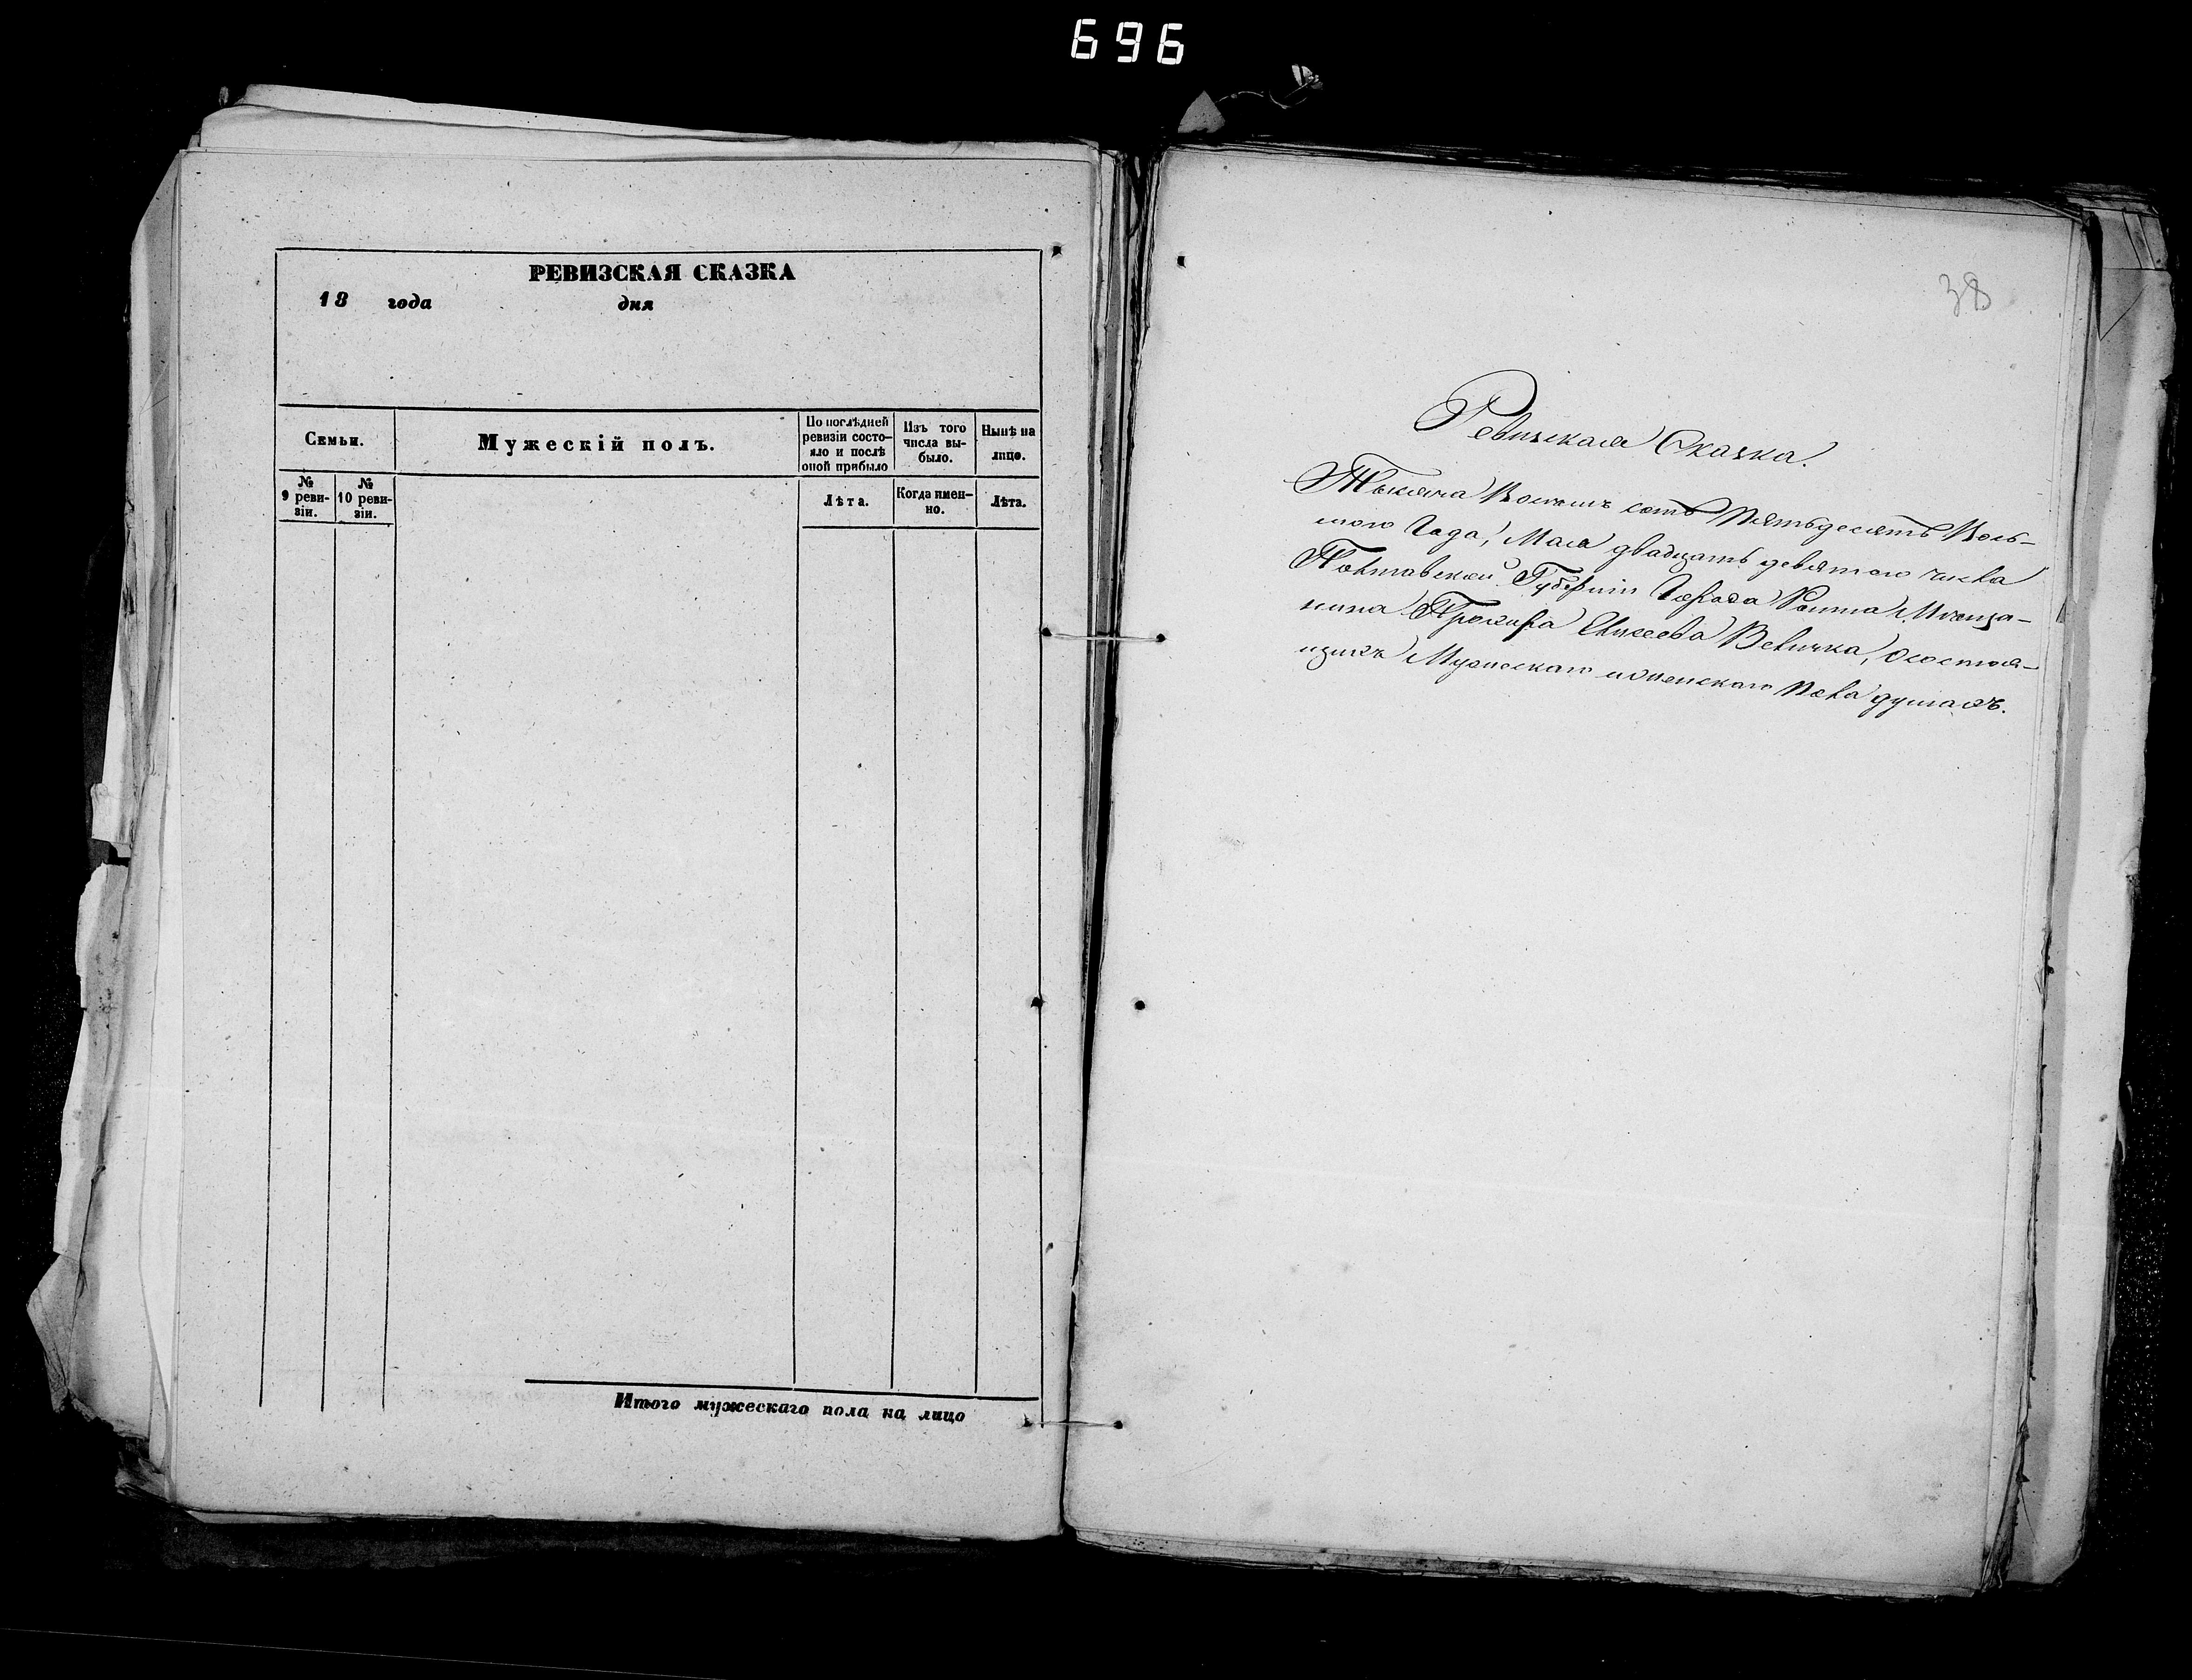 696
РЕВИЗСКАЯ СКАЗКА
18 года дня
Семьи.
Мужескій полъ.
По послѣдней ревизіи состо-
яло и послѣ оной прибыло
Изъ того числа вы-
было.
Нынѣ на лицо.
№ 9 реви-
зіи.
№ 10 реви-
зіи.
Лѣта.
Когда имен-
но.
Лѣта.
Итого мужескаго пола на лицо
38
Ревизская Сказка.
Тысяча Восемъ сотъ Пятьдесятъ Вось-
мого Года, Мая двадцать девятого числа
Полтавской Губерніи Города Ромна Мѣща-
нина Прокофа Елисеева Величка, о состоя-
щихъ Мужескаго и женскаго Пола душахъ.